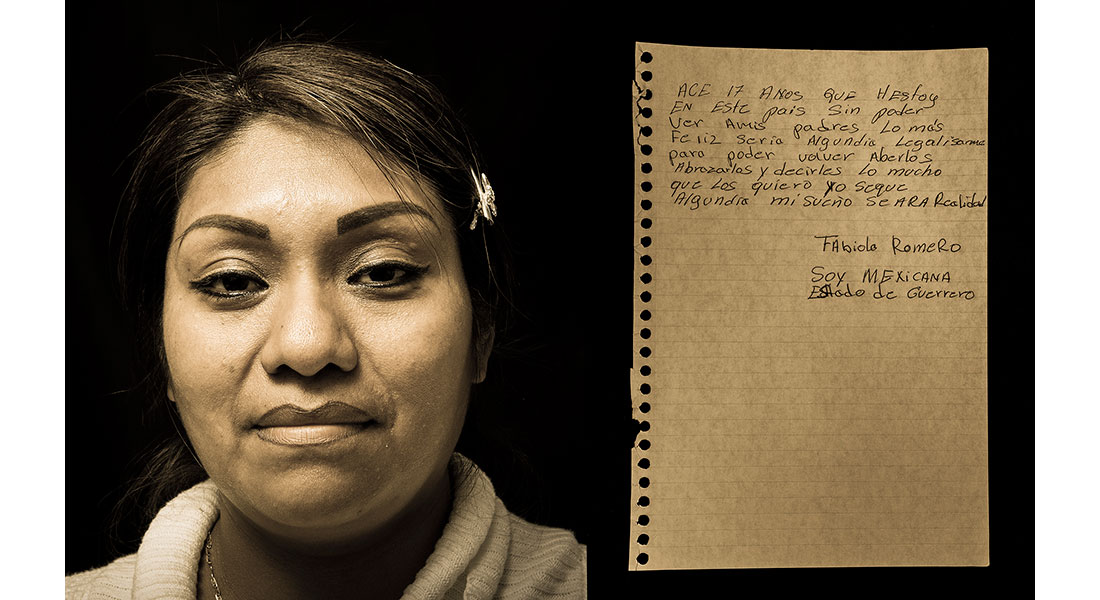 ACE 17 AÑOS QUE HEStoy
EN EStE pais Sin poder
Ver AMis padres Lo más
FeLiz Seria Algundia Legalisarme
para poder volver Aberlos
Abrazarlos y decirles Lo mucho
que Los quiero Yo Seque
Algundia mi Sueño SeARA Realidad
FAbiola RomeRo
SOY MEXiCANA
EStado de Guerrero